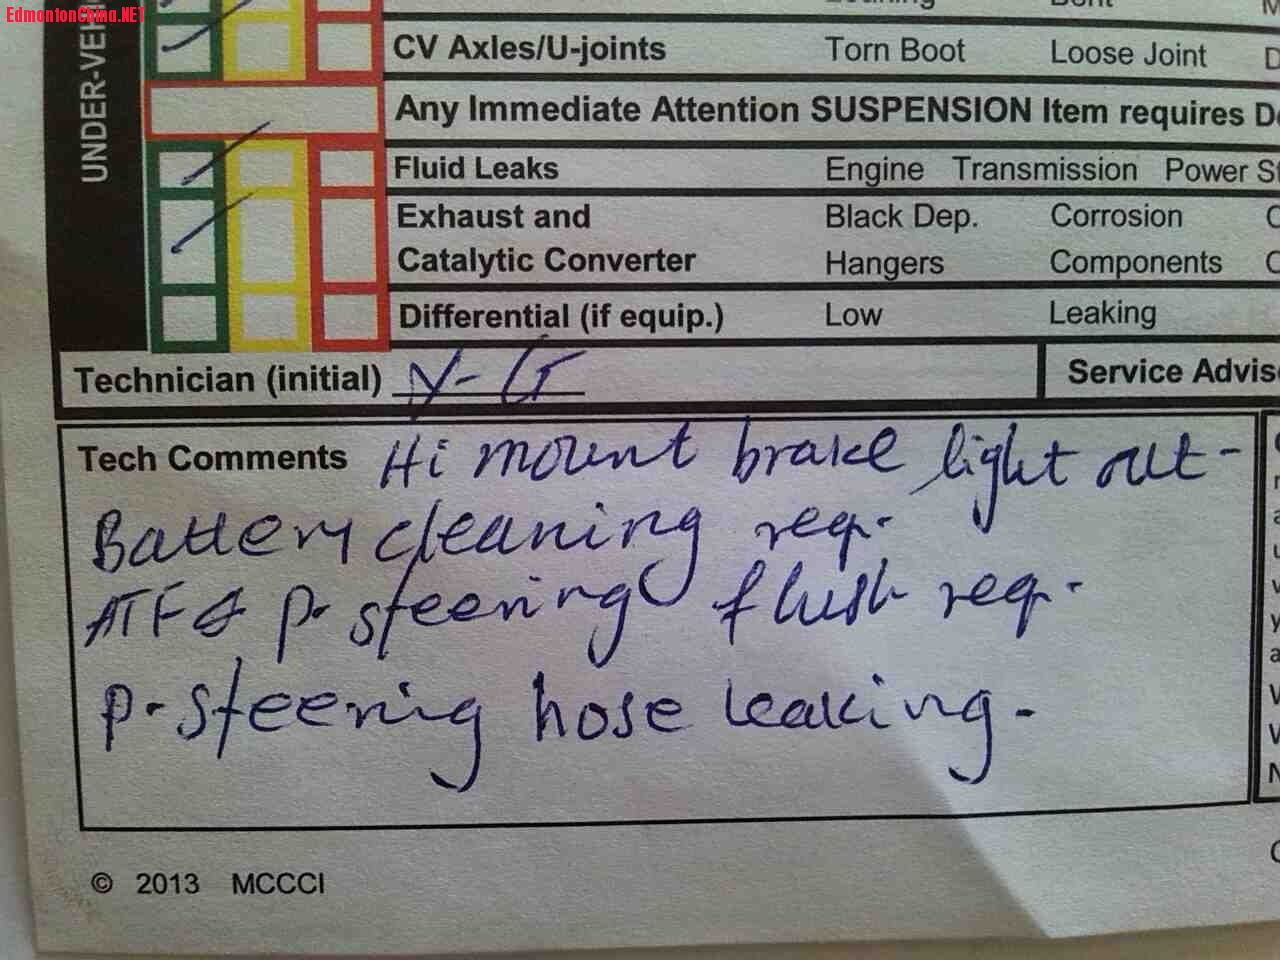 EdmontonChina.NET
UNDER-VEHI
CV Axles/U-joints Torn Boot Loose Joint D
Any Immediate Attention SUSPENSION Item requires De
Fluid Leaks Engine Transmission Power St
Exhaust and Black Dep. Corrosion
Catalytic Converter Hangers Components
Differential (if equip.) Low Leaking
Technician (initial) N-G Service Advis
Tech Comments Hi mount brake light out-
Battery cleaning req.
ATF & P. steering flush req.
P-steering hose leaking.
© 2013 MCCCI